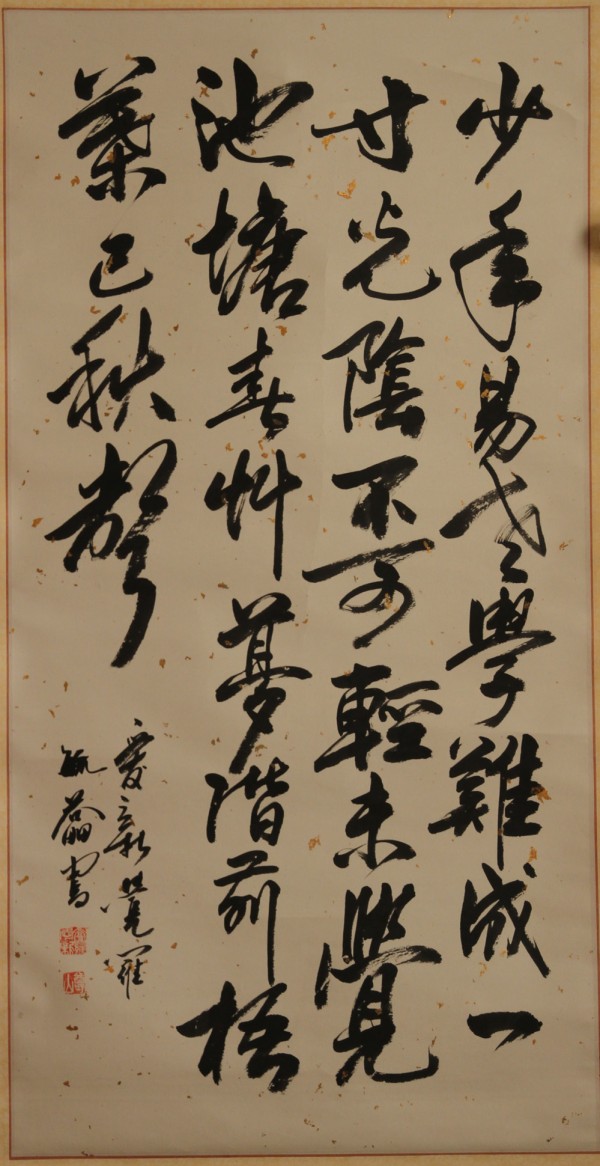 少年易老學難成一
寸光陰不可輕未覺
池塘春艸夢階前梧
葉已秋聲
愛新覺羅
毓書